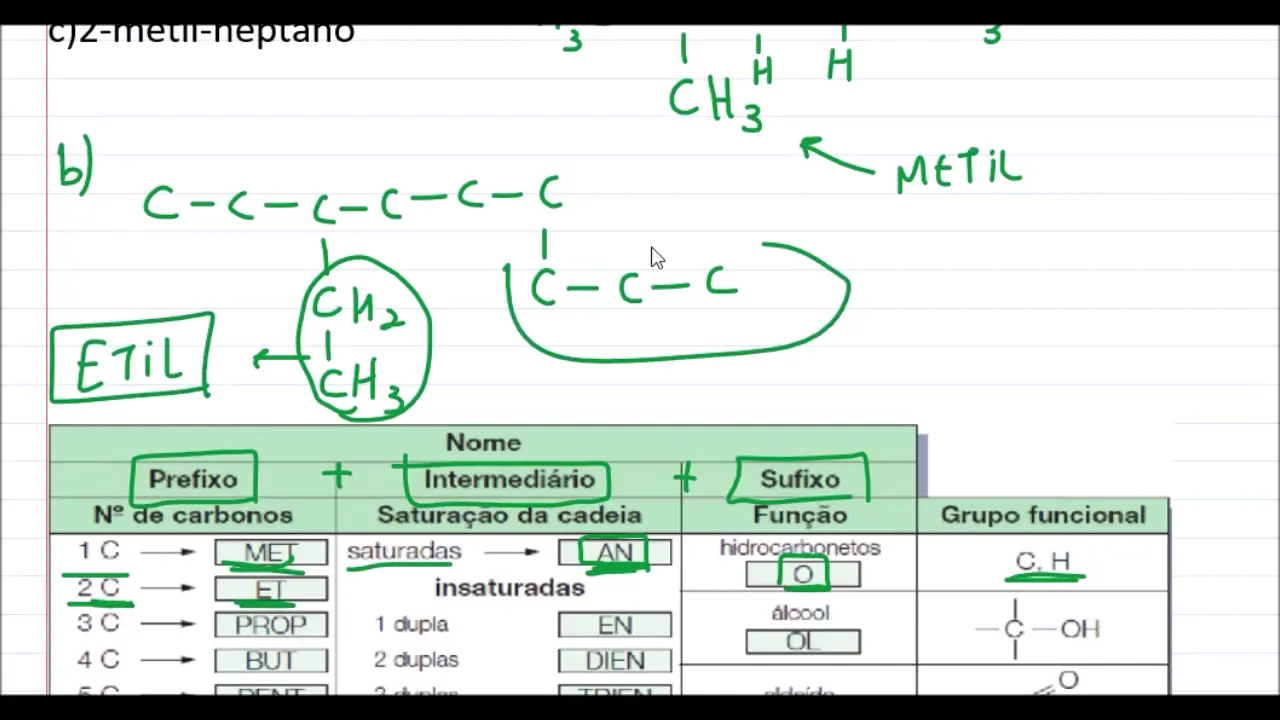 c)2-metil-heptano
3
H
H
3
CH3
METIL
b)
C - C - C - C - C - C
C - C - C
CH2
CH3
ETIL
Nome
Prefixo + Intermediário + Sufixo
Nº de carbonos Saturação da cadeia Função Grupo funcional
1 C MET saturadas AN hidrocarbonetos O C, H
2 C ET insaturadas
3 C PROP 1 dupla EN álcool OL -C-OH
4 C BUT 2 duplas DIEN
5 C PENT 3 duplas TRIEN aldeído O